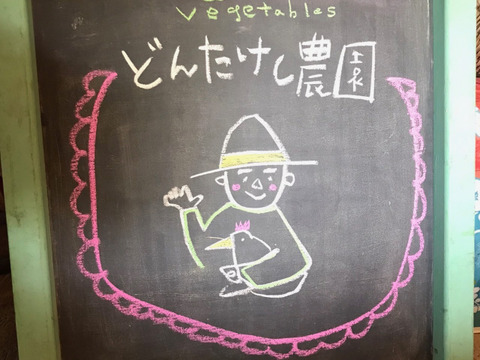 Vegetables
どんたけし農園